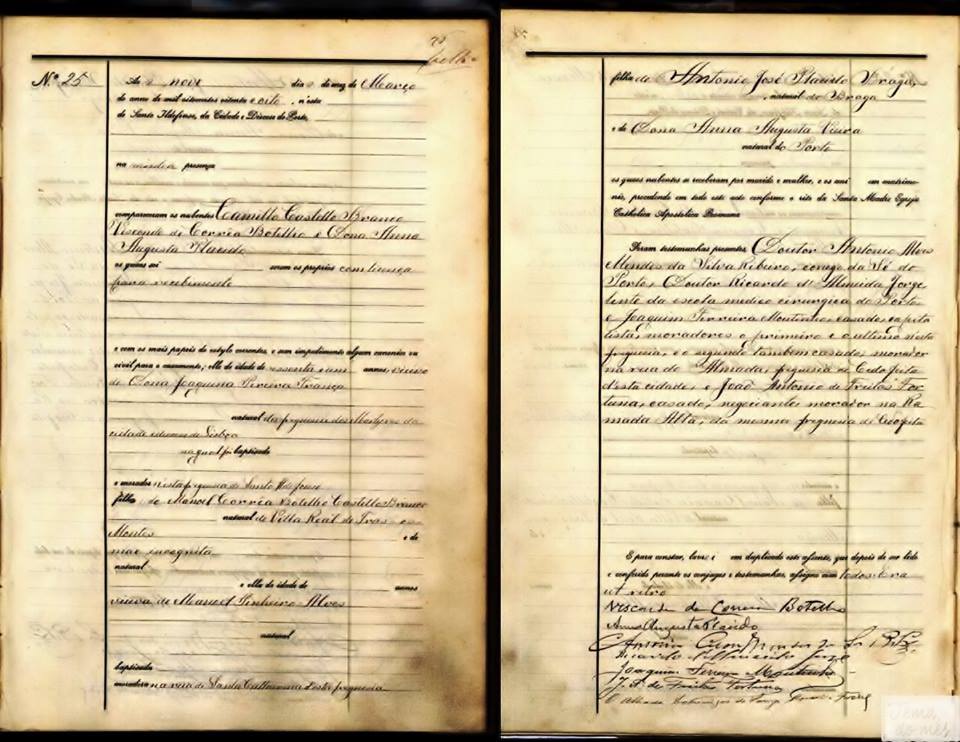 Nº 25
Ao nove dia do mez de Março
do anno de mil oitocentos oitenta e oito, n'esta
de Santo Ildefonso, da Cidade e Diocese do Porto,
na minha presença
compareceram os nubentes Camillo Castello Branco
Visconde de Corrêa Botelho e Dona Anna
Augusta Placido
os quaes sei serem os proprios com licença
para recebimento
e com os mais papeis do estylo correntes, e sem impedimento algum canonico ou
civil para o casamento; elle de idade de sessenta e um annos, viuvo
de Dona Joaquina Pereira França
natural da freguesia dos Martyres da
cidade e diocese de Lisboa
na qual foi baptisado
e morador nesta freguesia de Santo Ildefonso
filho de Manoel Corrêa Botelho Castello Branco
natural de Villa Real de Tras-os-
Montes e de
mãe incognita
natural
e ella de idade de annos
viuva de Manuel Pinheiro Alves
natural
baptisada
moradora na rua de Santa Catharina d'esta freguesia
filha de Antonio José Placido Braga,
natural de Braga
e de Dona Anna Augusta Vieira
natural do Porto
os quaes nubentes se receberam por marido e mulher, e os uni em matrimo-
nio, procedendo em todo este acto conforme o rito da Santa Madre Egreja
Catholica Apostolica Romana
Foram testemunhas presentes Doutor Antonio Alves
Mendes da Silva Ribeiro, conego da Sé do
Porto, Doutor Ricardo d'Almeida Jorge
lente da escola medico cirurgica do Porto
e Joaquim Ferreira Moutinho, casado, capita
lista, moradores o primeiro e o ultimo nesta
freguesia, e o segundo tambem casado, morador
na rua do Almada, freguesia de Cedofeita
d'esta cidade, e João Antonio de Freitas For-
tuna, casado, negociante, morador na Ra
mada Alta, da mesma freguesia de Cedofeita
E para constar, lavrei em duplicado este assento, que depois de ser lido
e conferido perante os conjuges e testemunhas, assigno com todos. Era
ut retro
Visconde de Correia Botelho
Anna Augusta Placido
Antonio Alves Mendes da S. Rib.
Ricardo d'Almeida Jorge
Joaquim Ferreira Moutinho
J. A. de Freitas Fortuna
O Abbade
Tema
do mês